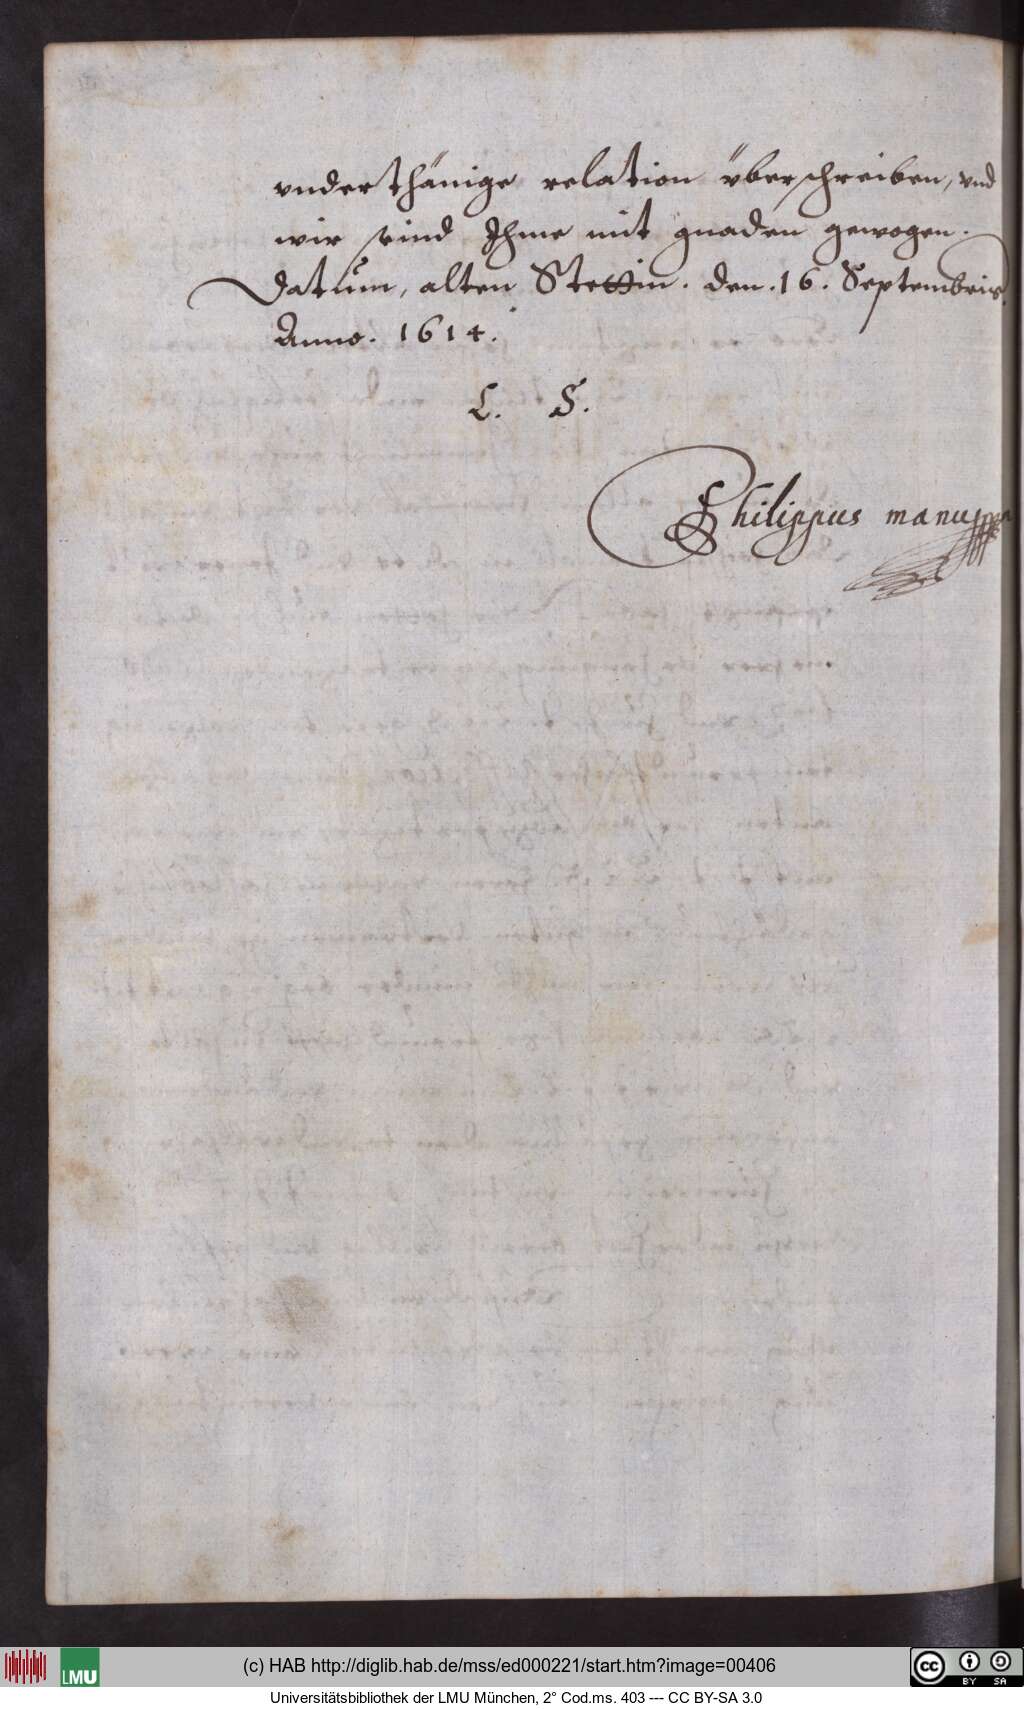 vnderthänige relation überschreiben, vnd
wir seind Ihme mit gnaden gewogen.
Datum, alten Stettin. den. 16. Septembris.
Anno. 1614.
L. S.
Philippus manu
LMU
(c) HAB http://diglib.hab.de/mss/ed000221/start.htm?image=00406
cc BY SA
Universitätsbibliothek der LMU München, 2° Cod.ms. 403 --- CC BY-SA 3.0